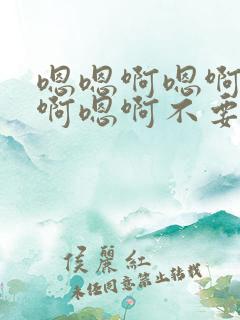 嗯嗯啊嗯啊
啊嗯啊不要
侯丽红
未经同意禁止转载